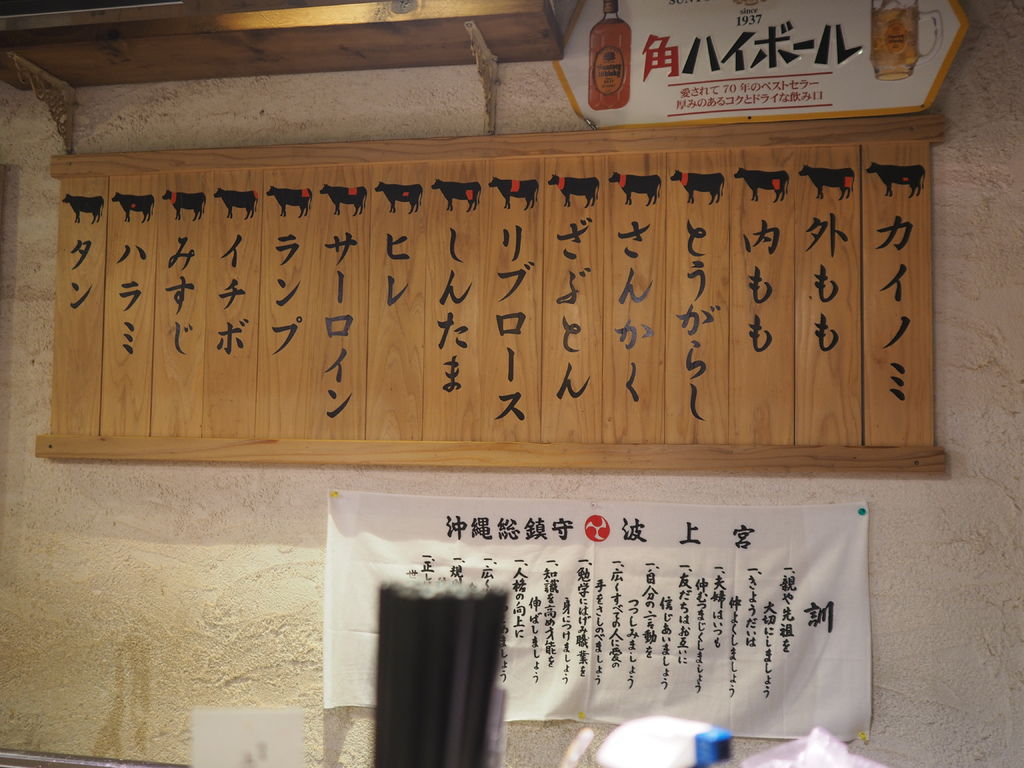 SUNTORY
since
1937
角ハイボール
愛されて70年のベストセラー
厚みのあるコクとドライな飲み口
カイノミ
外もも
内もも
とうがらし
さんかく
ざぶとん
リブロース
しんたま
ヒレ
サーロイン
ランプ
イチボ
みすじ
ハラミ
タン
沖縄総鎮守 波上宮
訓
一、親や先祖を
大切にしましょう
一、きょうだいは
仲よくしましょう
一、夫婦はいつも
仲むつまじくしましょう
一、友だちはお互いに
信じあいましょう
一、自分の言動を
つつしみましょう
一、広くすべての人に愛の
手をさしのべましょう
一、勉学にはげみ職業を
身につけましょう
一、知識を高め才能を
伸ばしましょう
一、人格の向上に
めましょう
一、広く
一、現
一、正し